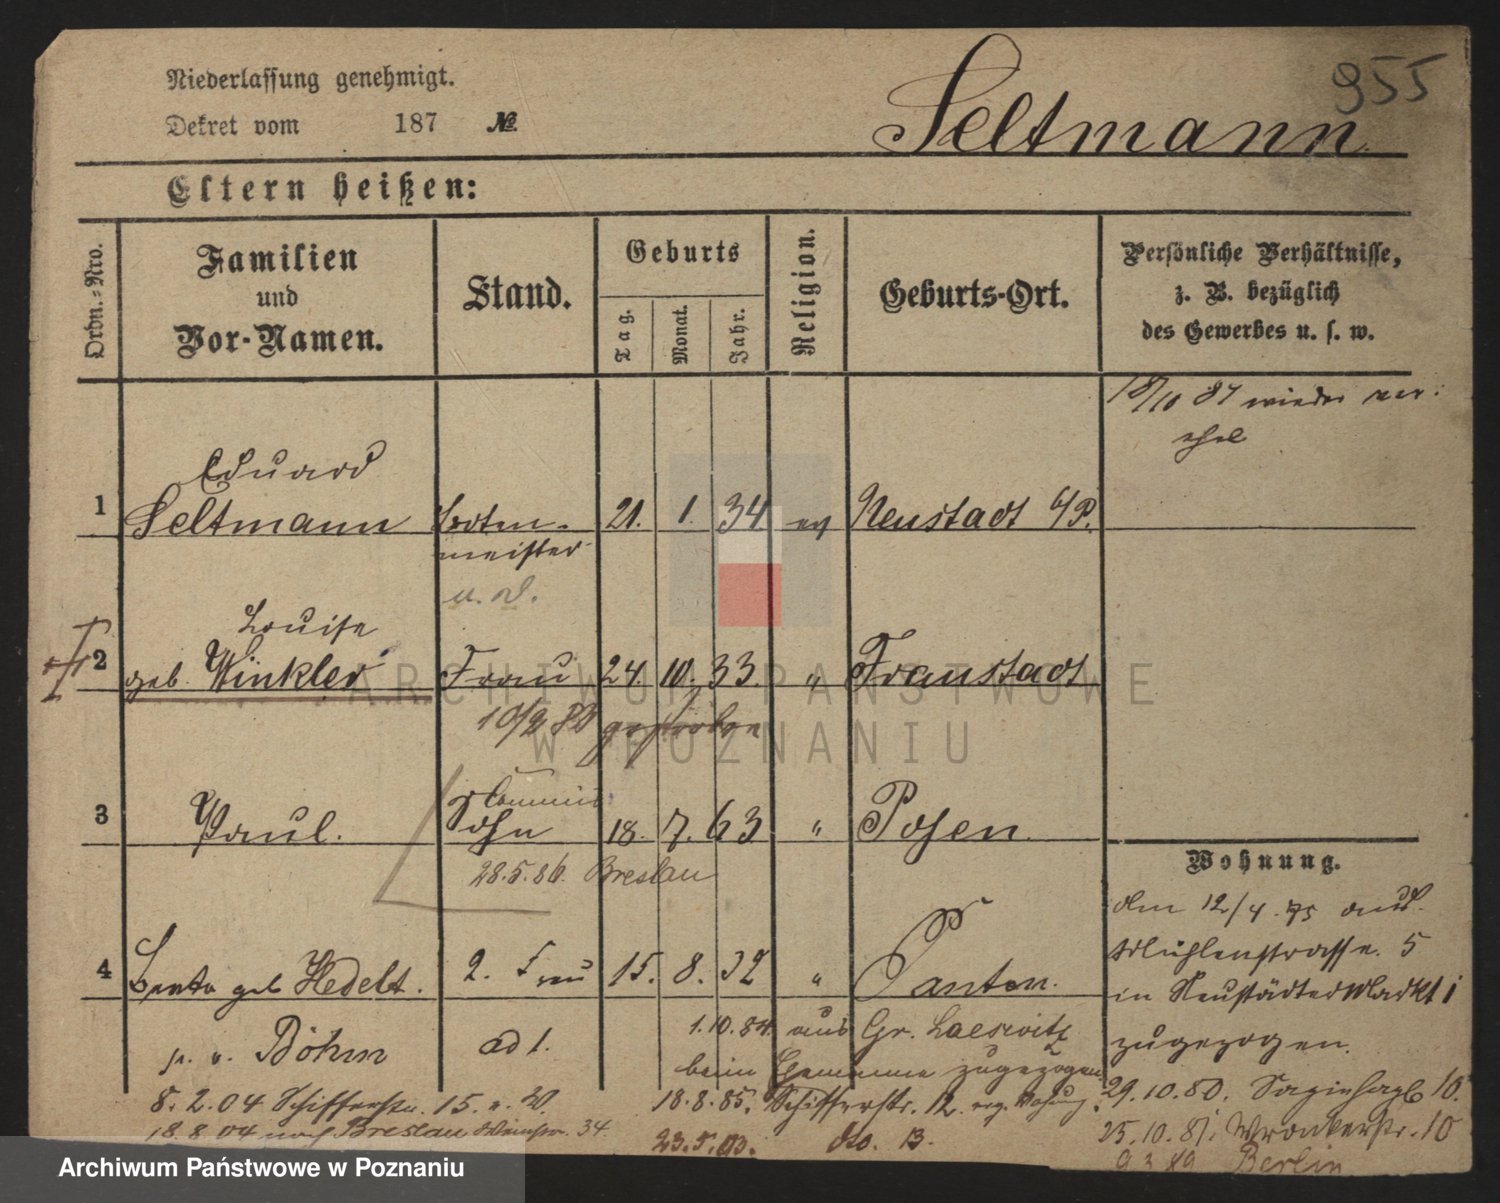 Niederlassung genehmigt.
Dekret vom 187 №
955
Seltmann
Eltern heißen:
Ordn.-Nro.
Familien
und
Vor-Namen.
Stand.
Geburts
Tag.
Monat.
Jahr.
Religion.
Geburts-Ort.
Persönliche Verhältnisse,
z. B. bezüglich
des Gewerbes u. s. w.
18/10 84 wieder ver:
ehel
Eduard
1 Seltmann Boten- 21. 1. 34 ev Neustadt b/P.
meister
Louise
2 geb. Winkler Frau 24. 10. 33. " Fraustadt
gestorben
3 Paul. Sohn 18. 7. 63 " Posen.
28.5.86. Breslau
Wohnung.
den 12/4. 75 aus
Mühlenstrasse. 5
in Neustädter Markt
zugezogen.
4 geb Hedelt. 2. Frau 15. 8. 32 " Panten.
Böhm ad 1.
1.10.84. aus Gr.
beim zugezogen
29.10.80. 10.
8. 2. 04 Schifferstr. 15.
18.8.85. Schifferstr. 12.
25.10.81. Wronkerstr. 10
18.8.04 nach Breslau 34.
23.5.03. dto. 13.
Berlin
ARCHIWUM PAŃSTWOWE
W POZNANIU
Archiwum Państwowe w Poznaniu